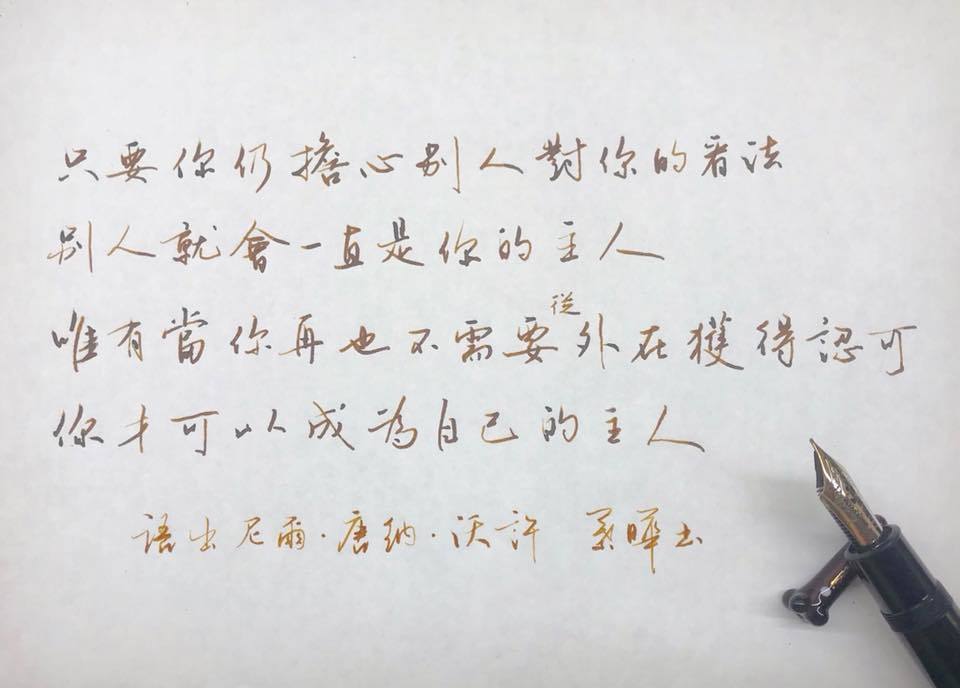 只要你仍擔心別人對你的看法
別人就會一直是你的主人
唯有當你再也不需要從外在獲得認可
你才可以成為自己的主人
語出尼爾·唐納·沃許 葉曄書